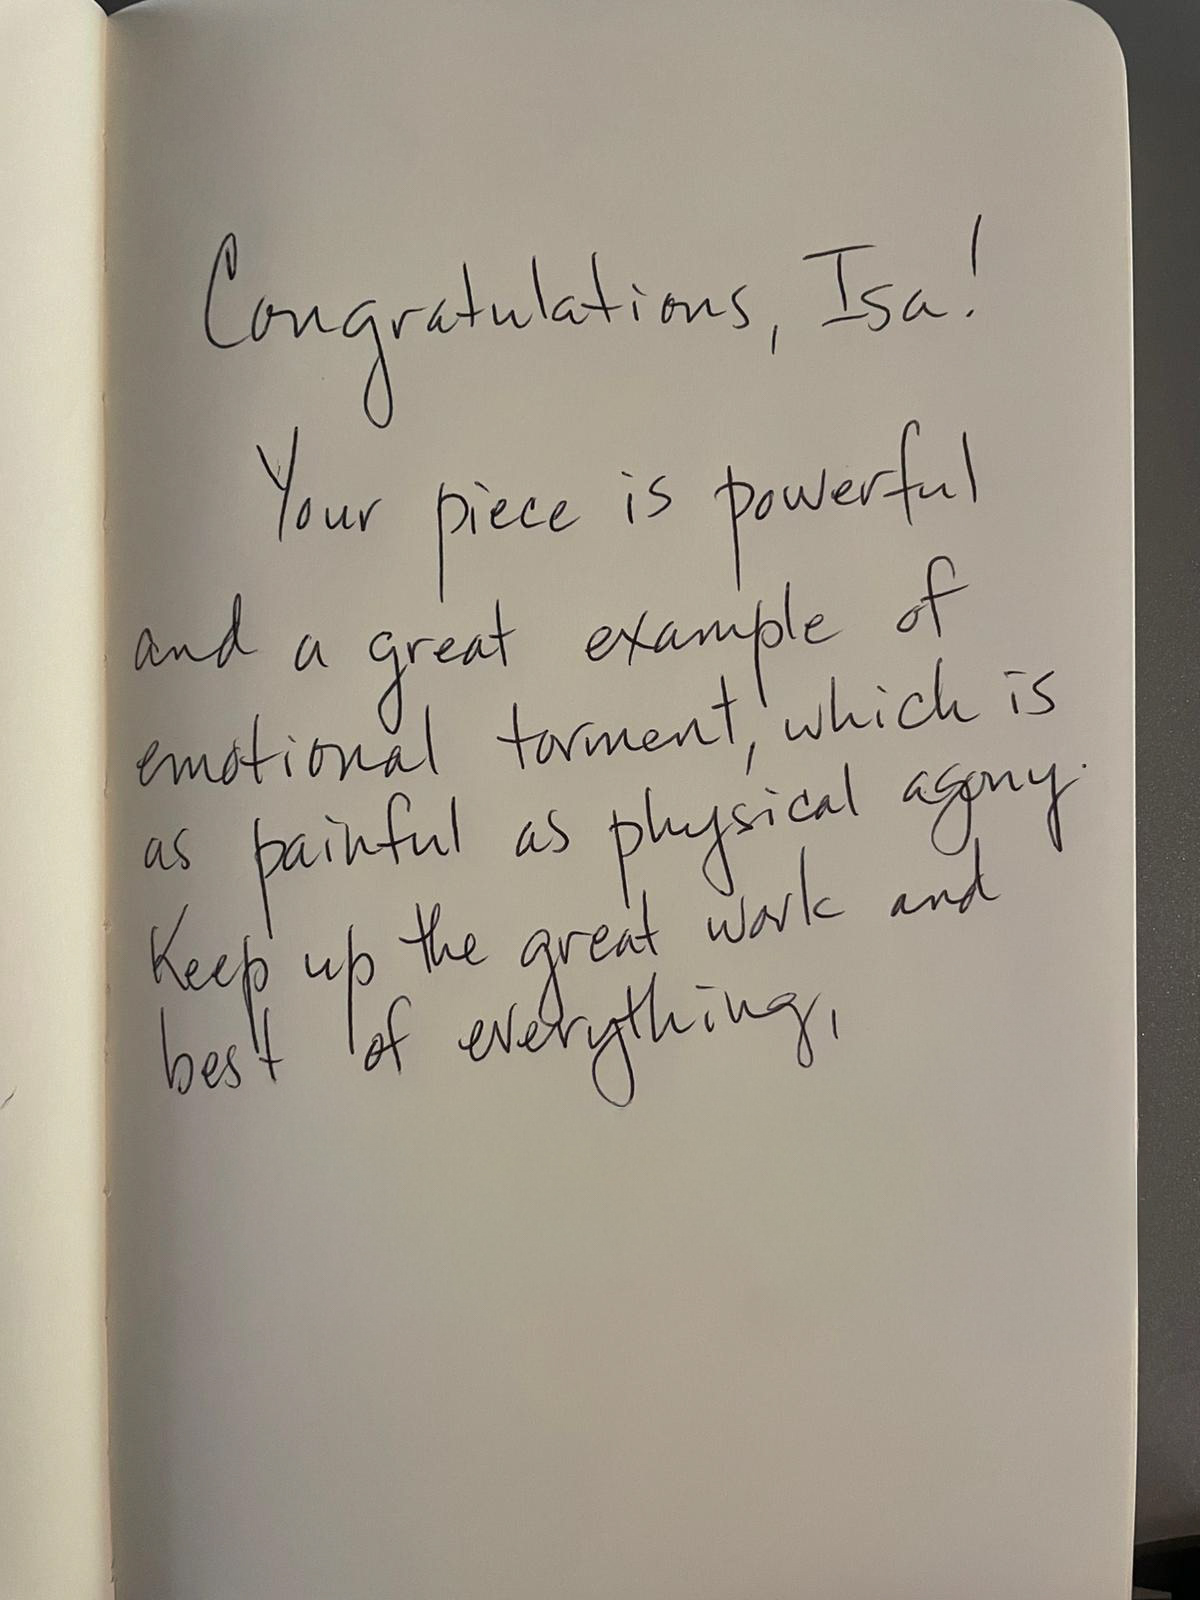 Congratulations, Isa!
Your piece is powerful
and a great example of
emotional torment, which is
as painful as physical agony.
Keep up the great work and
best of everything,